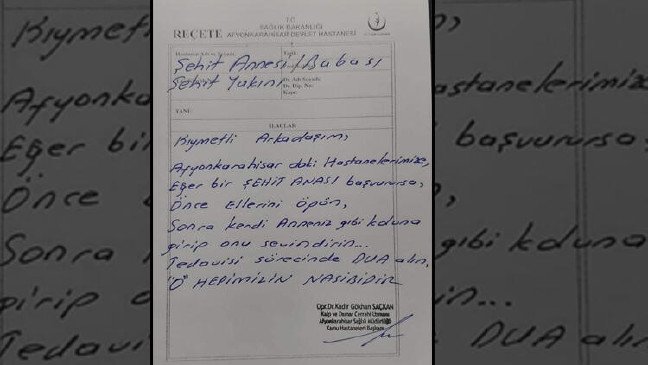 T.C.
SAĞLIK BAKANLIĞI
REÇETE AFYONKARAHİSAR DEVLET HASTANESİ
Tarih:
Şehit Annesi/Babası
Şehit Yakını
Dr. Adı Soyadı:
Dr. Dip. No:
Kaşe:
TANI:
İLAÇLAR
Kıymetli Arkadaşım,
Afyonkarahisar daki Hastanelerimize,
Eğer bir ŞEHİT ANASI başvurursa,
Önce Ellerini Öpün,
Sonra kendi Anneniz gibi koluna
girip onu sevindirin...
Tedavisi sürecinde DUA alın,
"O" HEPİMİZİN NASİBİDİR
Opr.Dr. Kadir Gökhan SAÇKAN
Kalp ve Damar Cerrahi Uzmanı
Afyonkarahisar Sağlık Müdürlüğü
Kamu Hastaneleri Başkanı